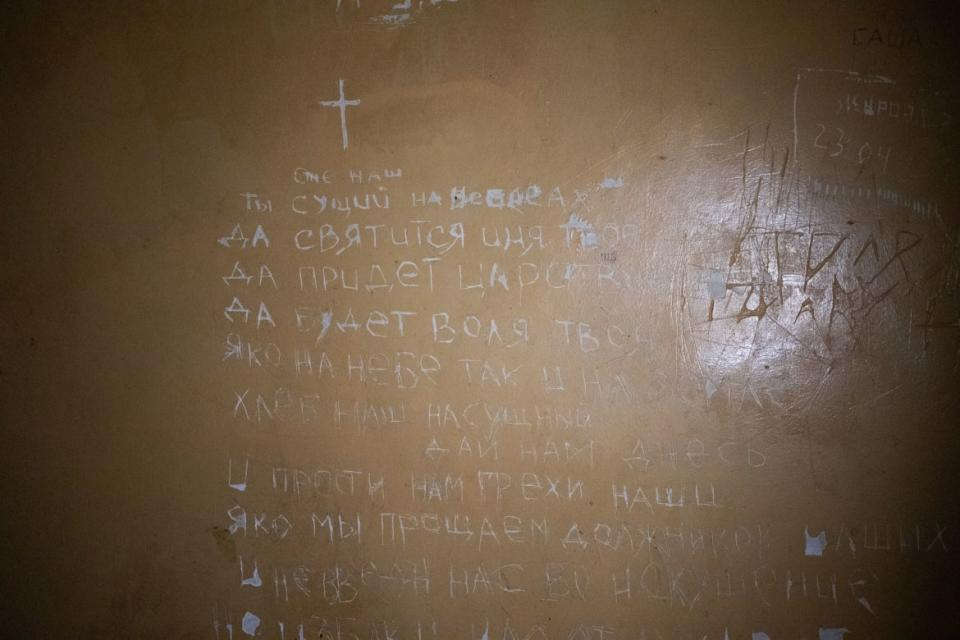 САША
23 04
Отче наш
Ты сущий на небесах
Да святится имя твое
Да придет царство
Да будет воля твоя
Яко на небе так и на
Хлеб наш насущный
дай нам днесь
И прости нам грехи наши
Яко мы прощаем должников нашых
И не введи нас во искушение